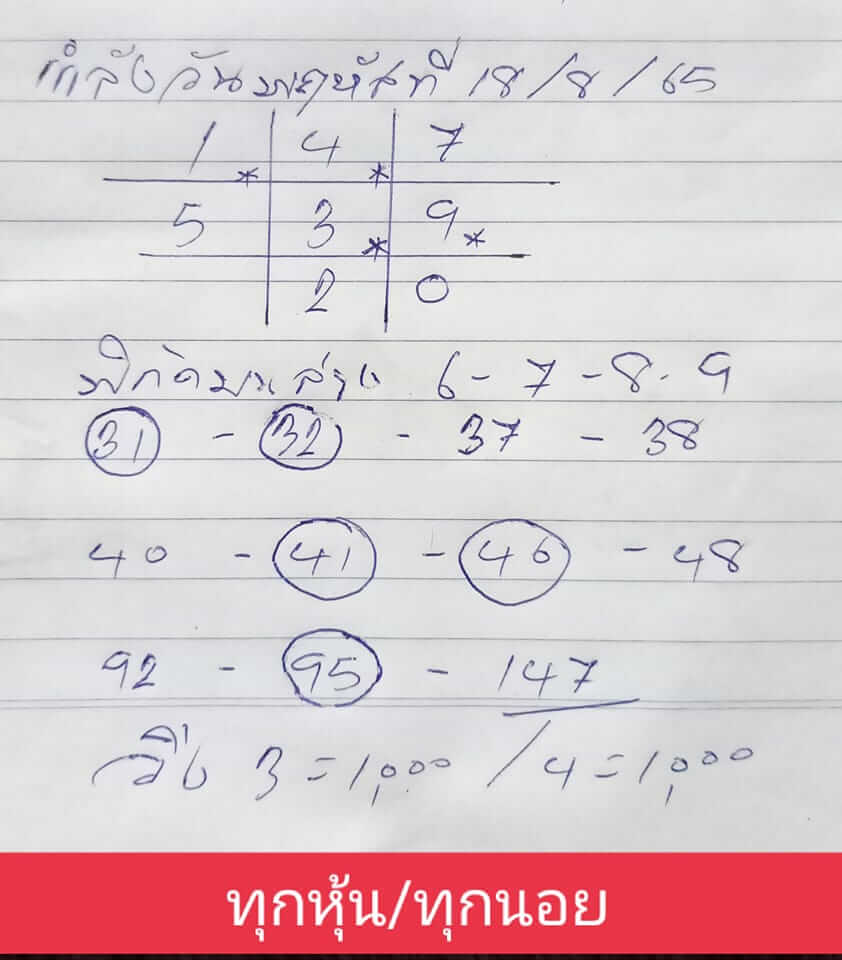 กำลังวันพฤหัสที่ 18/8/65
1 * 4 * 7
5 3 * 9 *
2 0
พิกัดบนล่าง 6-7-8-9
31 - 32 - 37 - 38
40 - 41 - 46 - 48
92 - 95 - 147
วิ่ง 3=1,000 / 4=1,000
ทุกหุ้น/ทุกนอย